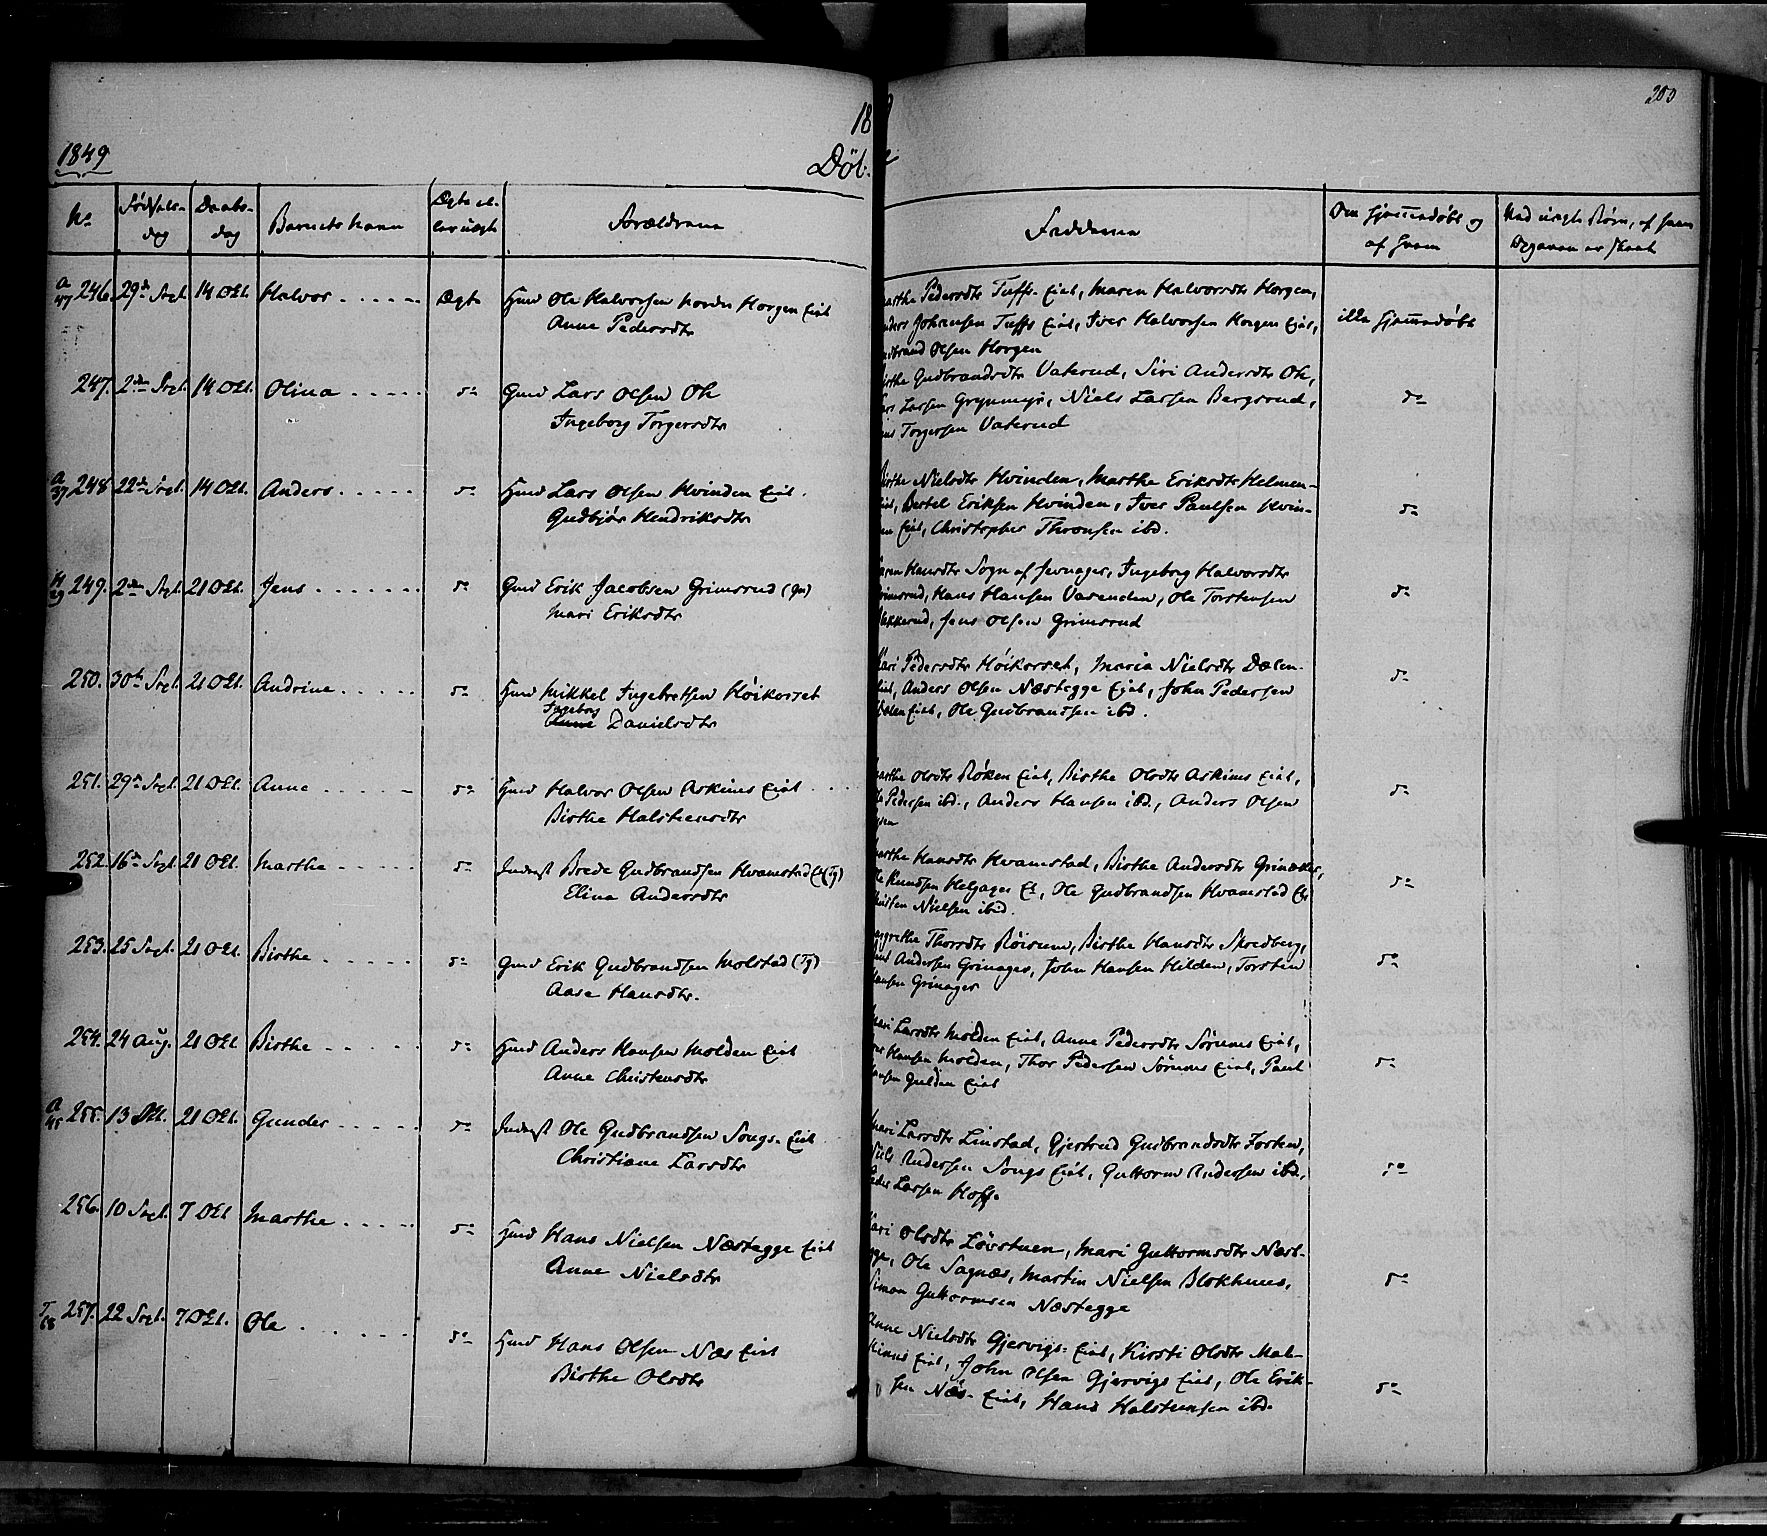 203
18
1849
Døb.
No
Fødsels-
dag
Daabs-
dag
Barnets Navn
Ægte el-
ler uægte
Forældrene
Fadderne
Om hjemmedøbt og
af hvem
Ved uægte Børn, af hvem
Opgaven er skeet
246. 29de Sept. 14 Okt. Halvor Ægte Gmd Ole Halvorsen nordre Horgen Eiet
Anne Pedersdtr
Marthe Pedersdtr Tuffs-Eiet, Maren Halvorsdtr Horgen,
Anders Johansen Tuffs Eiet, Iver Halvorsen Horgen Eiet,
Gudbrand Olsen Horgen
ikke hjemmedøbt
247. 2den Sept. 14 Okt. Olina do Gmd Lars Olsen Ok
Ingeborg Torgersdtr
Birthe Gudbrandsdtr Vaterud, Siri Andersdtr Ok,
Lars Larsen Grynmyr, Niels Larsen Bergsrud,
Torgersen Vaterud
do
248. 22de Sept. 14 Okt. Anders do Hmd Lars Olsen Hvinden Eiet.
Gudbjør Hendriksdtr
Birthe Nielsdtr Hvinden, Marthe Eriksdtr Helmen-
Eiet, Bertel Eriksen Hvinden, Iver Paulsen Hvin-
den Eiet, Christopher Thronsen ibd.
do
249. 2den Sept. 21 Okt. Jens do Gmd Erik Jacobsen Grimsrud (Gn)
Mari Eriksdtr
Maren Hansdtr Sogn af Jevnager, Ingeborg Halvorsdtr
Grimsrud, Hans Hansen Vasenden, Ole Torstensen
Bakkerud, Jens Olsen Grimsrud
do
250. 30te Sept. 21 Okt. Andrine do Hmd Mikkel Ingebretsen Høikorset
Ingeborg
Anne Danielsdtr
Mari Pedersdtr Høikorset, Maria Nielsdtr Dælen-
Eiet, Anders Olsen Næstegge Eiet, John Pedersen
Dælen Eiet, Ole Gudbrandsen ibd.
do
251. 29de Sept. 21 Okt. Anne do Hmd Halvor Olsen Askims Eiet
Birthe Halstensdtr
Marthe Olsdtr Røken Eiet, Birthe Olsdtr Askims Eiet,
Ole Pedersen ibd., Anders Hansen ibd., Anders Olsen
do
252. 16de Sept. 21 Okt. Marthe do Inderst Brede Gudbrandsen Hvamstad Et (Tg)
Eline Andersdtr
Marthe Hansdtr Hvamstad, Birthe Andersdtr Grinaker,
Ole Knudsen Helgager Et, Ole Gudbrandsen Hvamstad Et
Nielsen ibid.
do
253. 25 Sept. 21 Okt. Birthe do Gmd Erik Gudbrandsen Molstad (Tg)
Aase Hansdtr.
Margrethe Thorsdtr Røisum, Birthe Hansdtr Skredberg,
Andersen Grinager, John Hansen Hilden, Torsten
Hansen Grinager
do
254. 24 Aug. 21 Okt. Birthe do Hmd Anders Hansen Molden Eiet
Anne Christensdtr
Mari Larsdtr Molden Eiet, Anne Pedersdtr Sørums Eiet,
Hansen Molden, Thor Pedersen Sørums Eiet, Paul
Hansen Gulden Eiet
do
255. 13 Okt. 21 Okt. Gunder do Inderst Ole Gudbrandsen Songs-Eiet
Christiane Larsdtr
Mari Larsdtr Linstad, Gjertrud Gudbrandsdtr Forken,
Niels Andersen Songs Eiet, Guttorm Andersen ibd.,
Peder Larsen Hoff.
do
256. 10 Sept. 7 Okt Marthe do Hmd Hans Nielsen Næstegge Eiet
Anne Nielsdtr
Kari Olsdtr Løvstuen, Mari Guttormsdtr Næst-
egge, Ole Sagnæs, Martin Nielsen Blokhuus,
Simon Guttormsen Næstegge
do
257. 22 Sept. 7 Okt. Ole do Hmd Hans Olsen Næs Eiet
Birthe Olsdtr
Anne Nielsdtr Gjervigs-Eiet, Kirsti Olsdtr Mal-
kinns Eiet, John Olsen Gjervigs Eiet, Ole Erik-
sen Næs-Eiet, Hans Halstensen ibd.
do